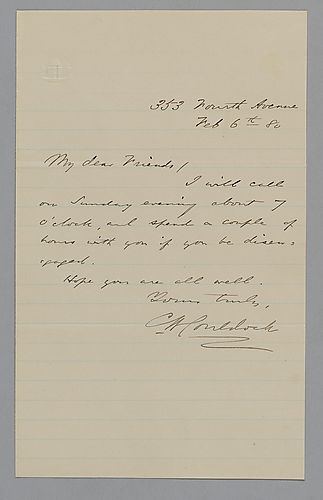 353 Fourth Avenue
Feb 6th 80
My dear Friends/
I will call
on Sunday evening about 7
o'clock, and spend a couple of
hours with you if you be disen-
gaged.
Hope you are all well.
Yours truly,
C W Couldock